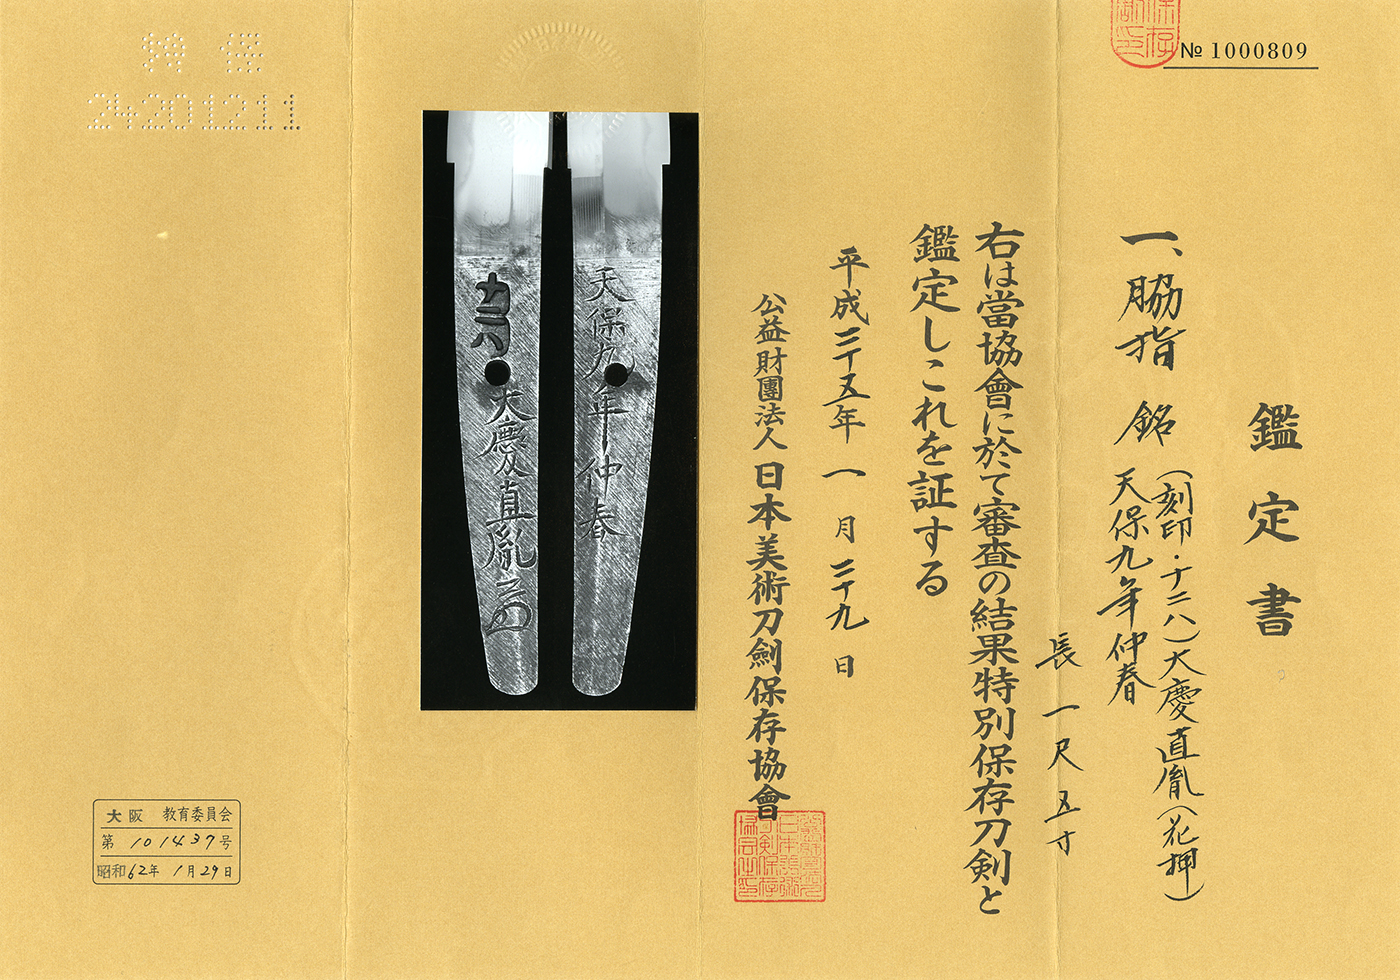 № 1000809
鑑定書
一、脇指 銘 (刻印・十二八)大慶直胤(花押)
天保九年仲春
長 一尺五寸
右は當協會に於て審査の結果特別保存刀剣と
鑑定しこれを証する
平成二十五年 一月二十九日
公益財團法人 日本美術刀劍保存協會
天保九年仲春
大慶直胤
24201211
大阪 教育委員会
第 101437号
昭和62年 1月29日